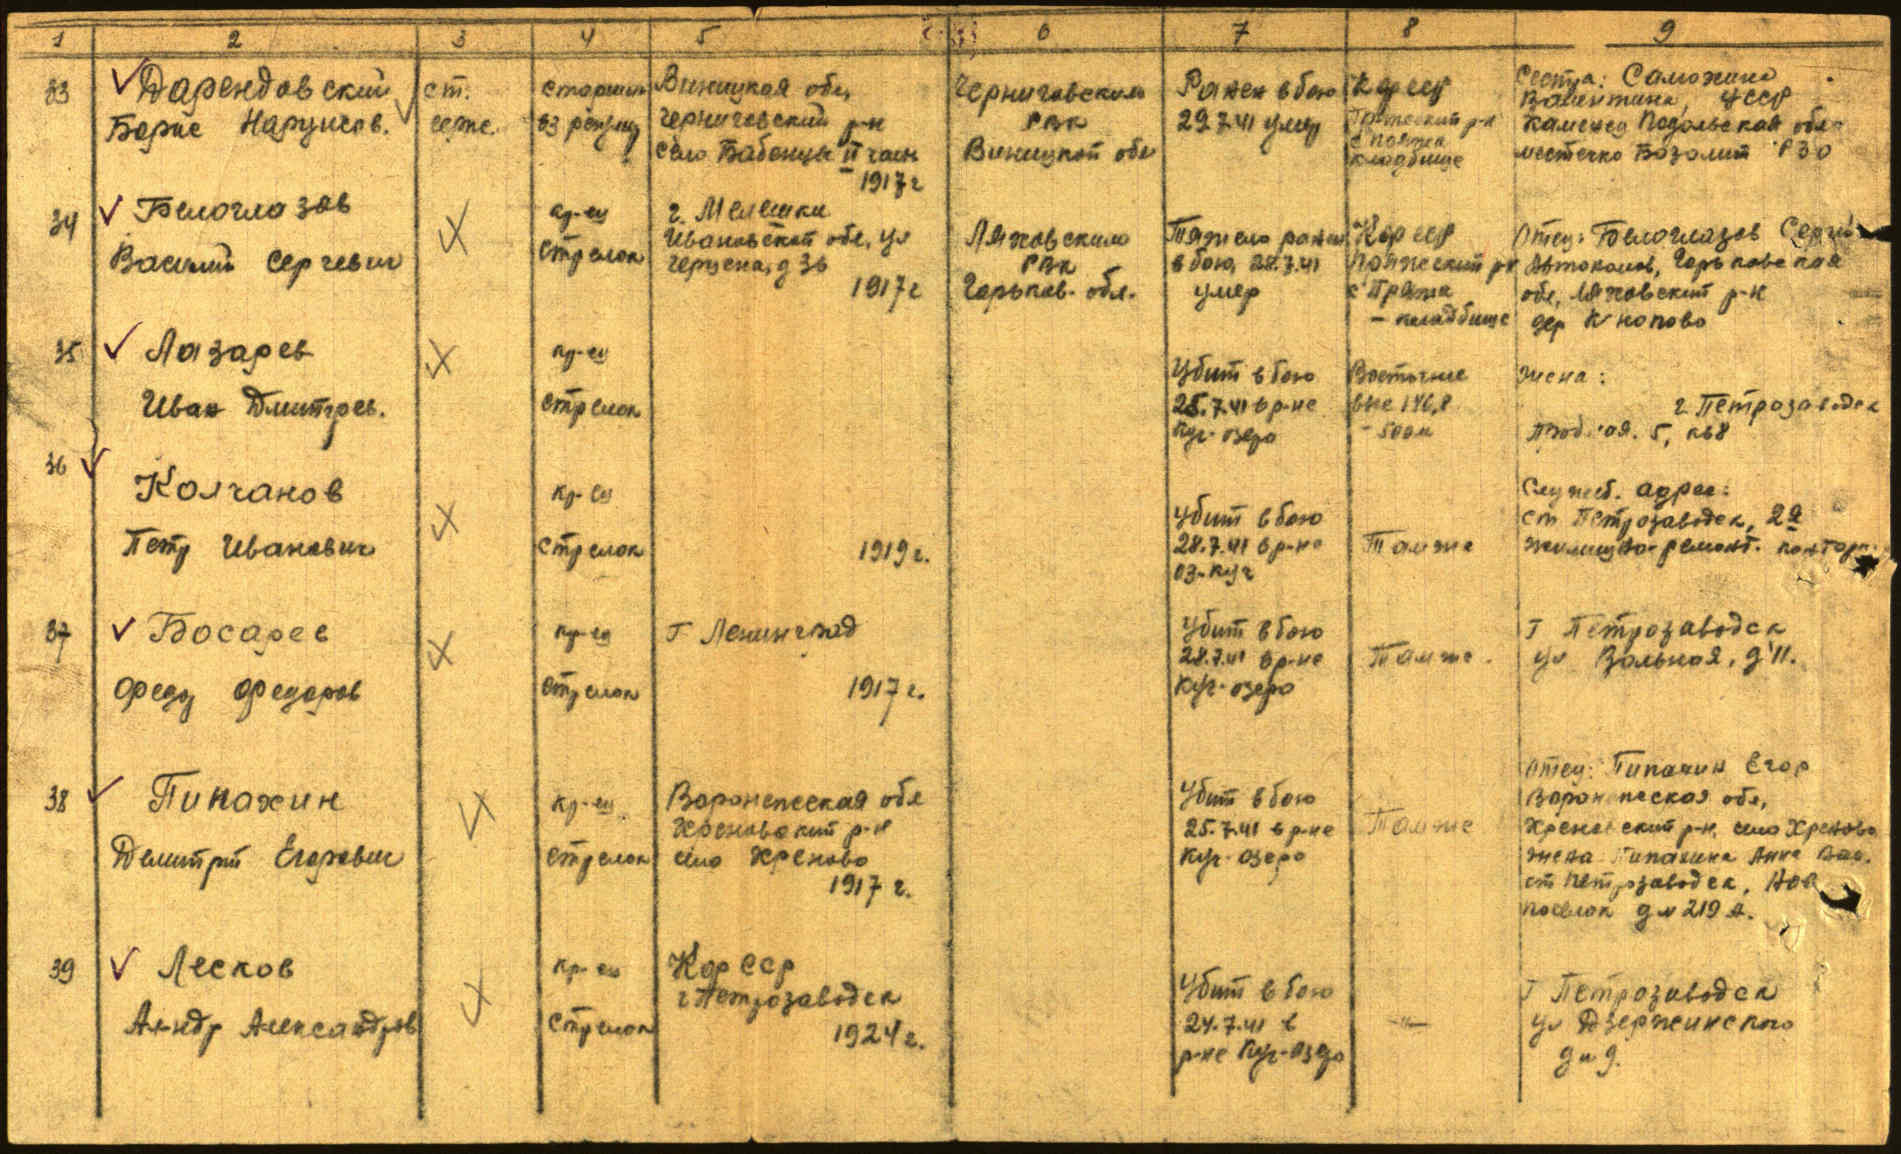 1 2 3 4 5 6 7 8 9
33 Дарендовский Борис Нарцисов.
ст. серж.
Виницкая обл,
Черниговский р-н
село Бабенцы II части
1917 г
Черниговским
РВК
Виницкой обл
Ранен в бою
29.7.41 умер
КарССР
Пряжский р-н
с Пряжа
кладбище
Сестра: Саможина
Валентина, УССР
Каменец Подольская обл
местечко
34 Белоглазов
Василий Сергевич
кр-ец
Стрелок
г. Меленки
Ивановской обл, ул
Герцена, д 36
1917 г
Ляховским
РВК
Горьков. обл.
Тяжело ранен
в бою 28.7.41
умер
КарССР
Пряжеский р-н
с Пряжа
- кладбище
Отец: Белоглазов Сергей
Горьковская
обл, Ляховский р-н
дер Кнопово
35 Лазарев
Иван Дмитрев.
кр-ец
Стрелок
Убит в бою
25.7.41 в р-не
Куч-озеро
Восточнее
выс 146,8
- 500м
жена:
г Петрозаводск
5, кв 8
36 Колчанов
Петр Иванович
кр-ец
Стрелок
1919 г.
Убит в бою
28.7.41 в р-не
оз-Куч
Там же
Служеб. адрес:
ст Петрозаводск, 2я
жилищно-ремонт. контора
37 Босарев
Федр Федоров
кр-ец
Стрелок
Г Ленинград
1917 г.
Убит в бою
28.7.41 в р-не
Куч-озеро
Там же.
Г Петрозаводск
ул Вольная, д 11.
38 Пипахин
Демитрий Егорович
кр-ец
Стрелок
Воронежская обл
Хреновский р-н
село Хреново
1917 г.
Убит в бою
25.7.41 в р-не
Куч-озеро
Там же
Отец: Пипахин Егор
Воронежская обл,
Хреновский р-н, село Хреново
жена Пипахина Анна Вас.
ст Петрозаводск, Нов
поселок д № 219 А.
39 Лесков
Андр Александров
кр-ец
Стрелок
КарССР
г Петрозаводск
1924 г.
Убит в бою
24.7.41 в
р-не Куч-озеро
-"-
Г Петрозаводск
ул Дзержинского
д № 9.